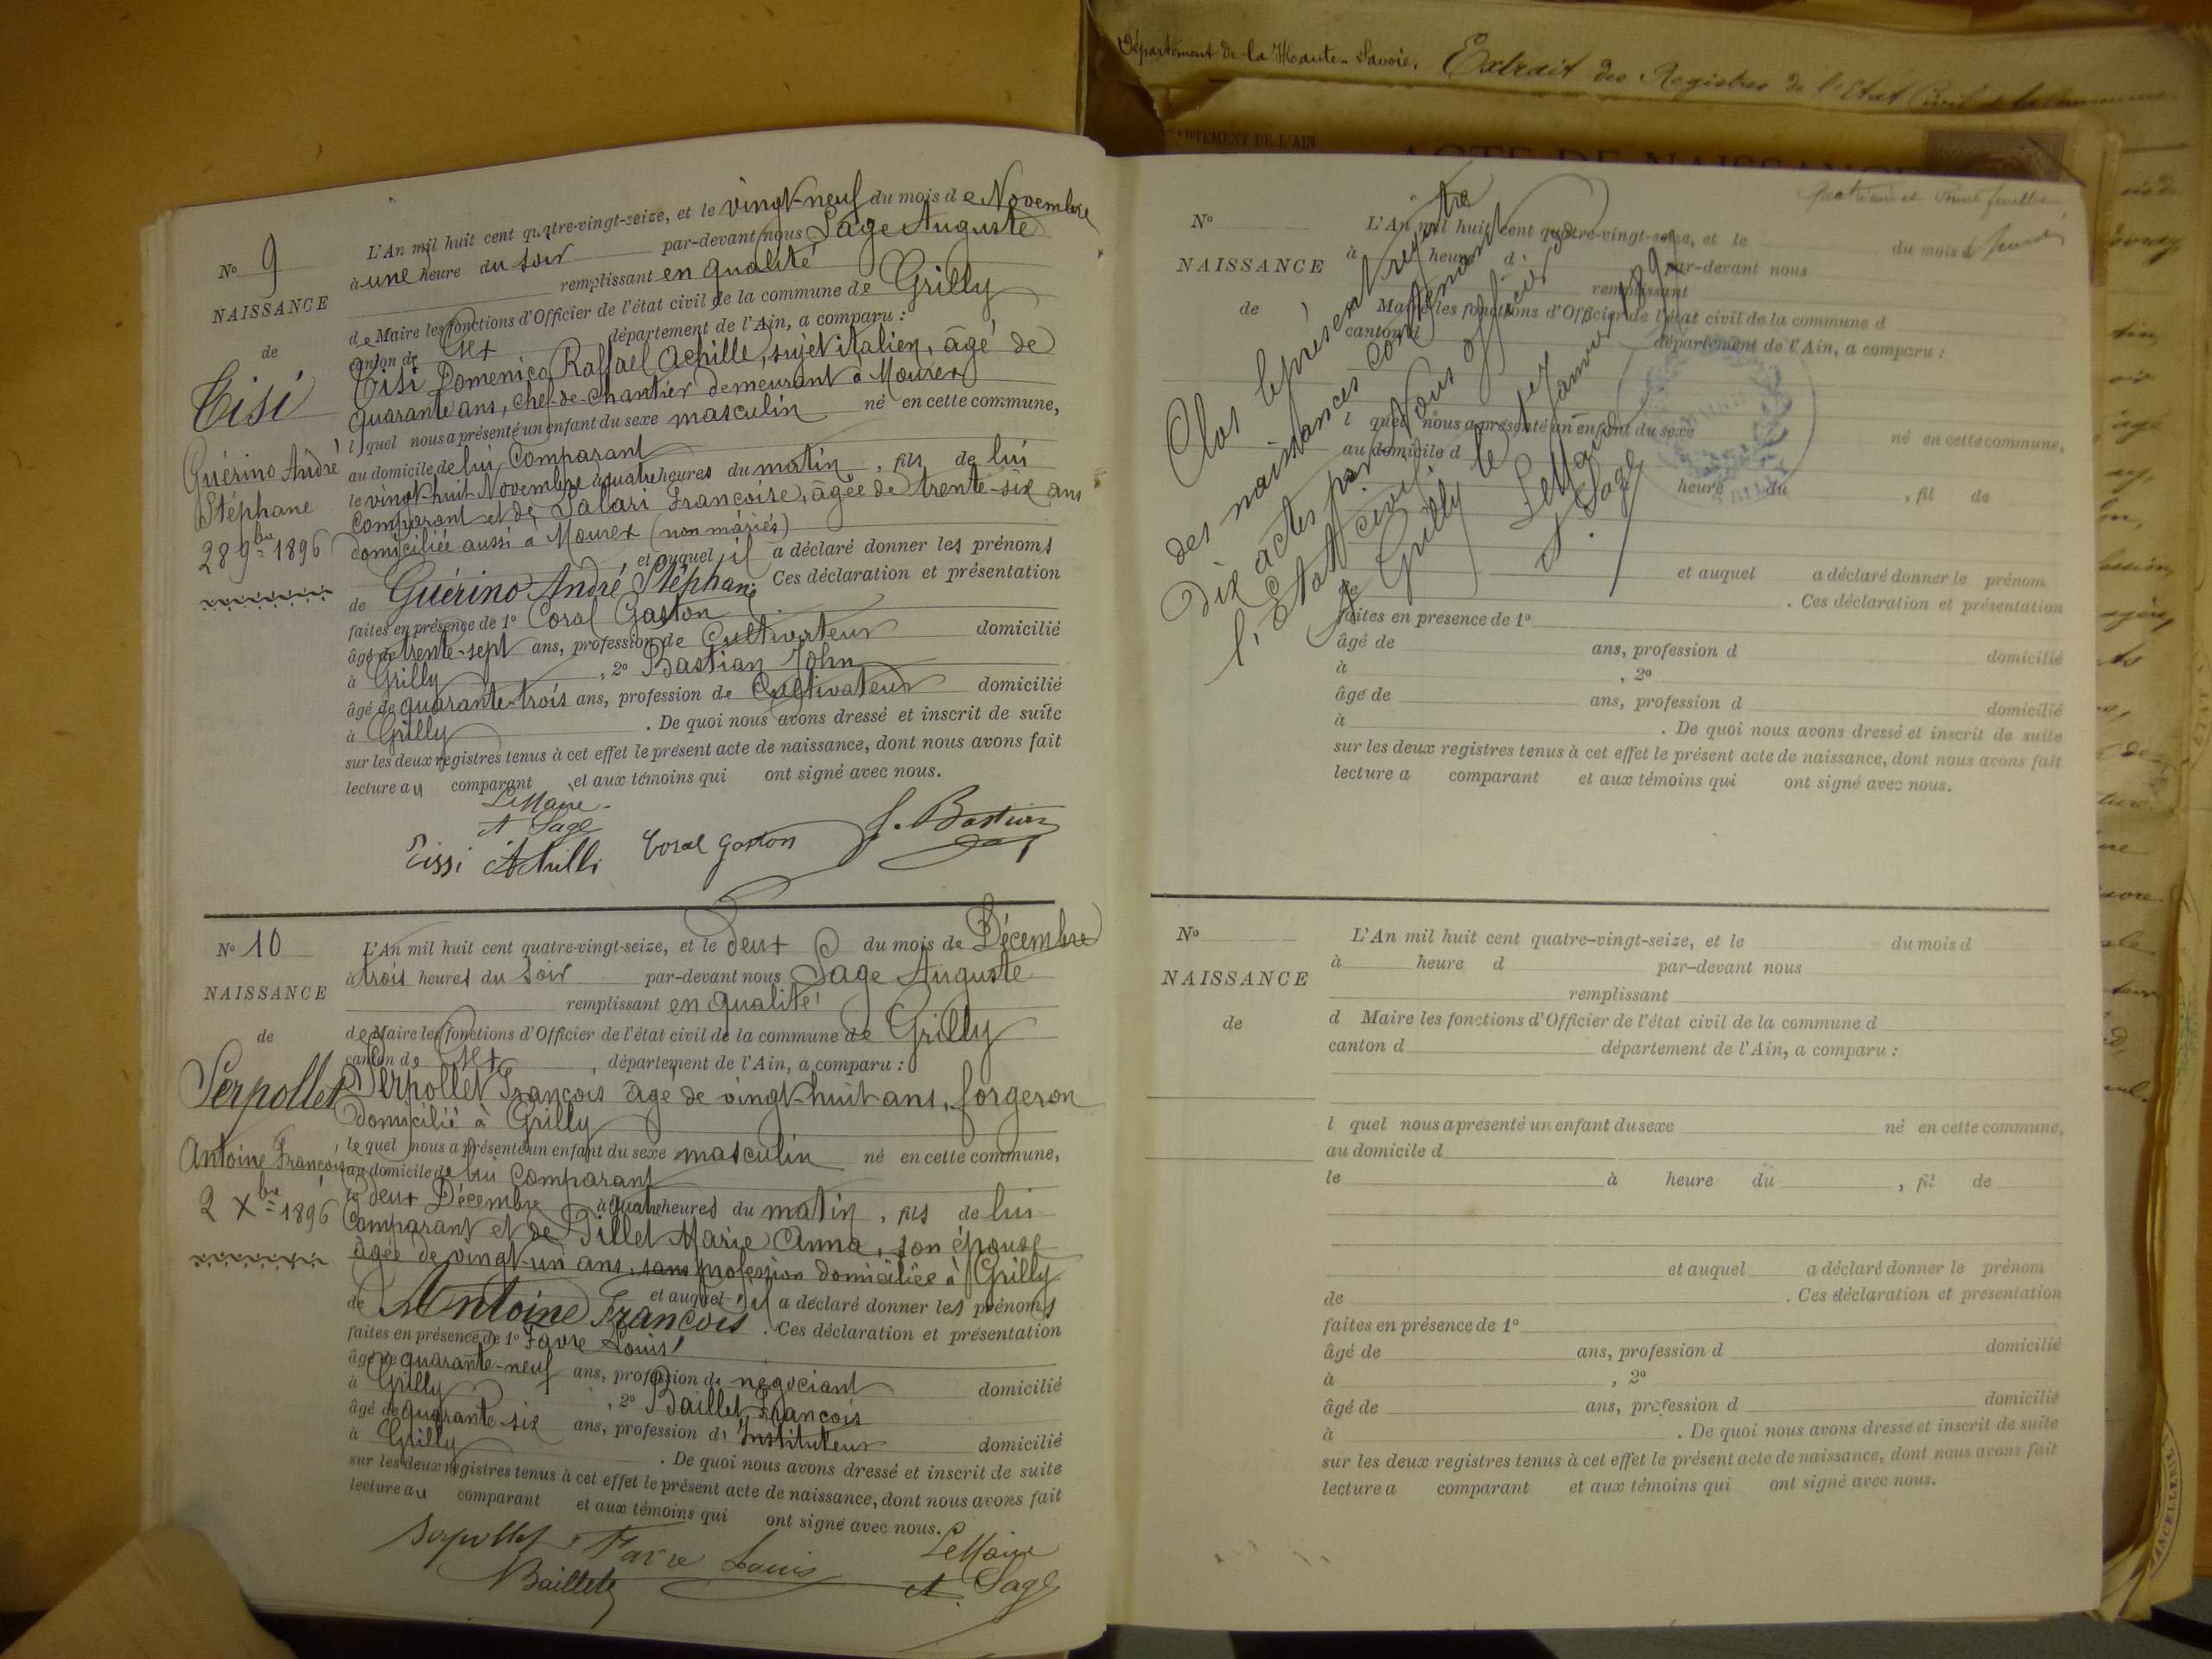 Département de la Haute-Savoie. Extrait des Registres de l'Etat Civil de la Commune
DÉPARTEMENT DE L'AIN
ACTE DE NAISSANCE
N° 9
NAISSANCE
de
Tisi
Guérino André
Stéphane
28 9bre 1896
L'An mil huit cent quatre-vingt-seize, et le vingt-neuf du mois de Novembre
à une heure du soir par-devant nous Sage Auguste
remplissant en qualité
de Maire les fonctions d'Officier de l'état civil de la commune de Grilly
canton de Gex département de l'Ain, a comparu :
Tisi Domenico Raffael Achille, sujet italien, âgé de
quarante ans, chef-de-chantier demeurant à Mourex
lequel nous a présenté un enfant du sexe masculin né en cette commune,
au domicile de lui Comparant
le vingt-huit Novembre à quatre heures du matin, fils de lui
Comparant et de Salari Françoise, âgée de trente-six ans
domiciliée aussi à Mourex (non mariés)
et auquel il a déclaré donner les prénoms
de Guérino André Stéphane Ces déclaration et présentation
faites en présence de 1° Coral Gaston
âgé de trente-sept ans, profession de Cultivateur domicilié
à Grilly, 2° Bastian John
âgé de quarante-trois ans, profession de Cultivateur domicilié
à Grilly. De quoi nous avons dressé et inscrit de suite
sur les deux registres tenus à cet effet le présent acte de naissance, dont nous avons fait
lecture au comparant et aux témoins qui ont signé avec nous.
Le Maire
A Sage
Tissi Achilli Coral Gaston J. Bastian
N° 10
NAISSANCE
de
Serpollet
Antoine François
2 Xbre 1896
L'An mil huit cent quatre-vingt-seize, et le deux du mois de Décembre
à trois heures du soir par-devant nous Sage Auguste
remplissant en qualité
de Maire les fonctions d'Officier de l'état civil de la commune de Grilly
canton de Gex, département de l'Ain, a comparu :
Serpollet François âgé de vingt-huit ans, forgeron
domicilié à Grilly
le quel nous a présenté un enfant du sexe masculin né en cette commune,
au domicile de lui Comparant
le deux Décembre à quatre heures du matin, fils de lui
Comparant et de Dillet Marie Anna, son épouse
âgée de vingt-un ans, sans profession domiciliée à Grilly
et auquel il a déclaré donner les prénoms
de Antoine François. Ces déclaration et présentation
faites en présence de 1° Favre Louis
âgé de quarante-neuf ans, profession de négociant domicilié
à Grilly, 2° Baillet François
âgé de quarante-six ans, profession d'Instituteur domicilié
à Grilly. De quoi nous avons dressé et inscrit de suite
sur les deux registres tenus à cet effet le présent acte de naissance, dont nous avons fait
lecture au comparant et aux témoins qui ont signé avec nous.
Serpollet Favre Louis Le Maire
Baillet A. Sage
N°
NAISSANCE
de
L'An mil huit cent quatre-vingt-seize, et le du mois d
à heure d par-devant nous
remplissant
Maire les fonctions d'Officier de l'état civil de la commune d
canton d département de l'Ain, a comparu :
l quel nous a présenté un enfant du sexe né en cette commune,
au domicile d
heure du, fil de
et auquel a déclaré donner le prénom
de. Ces déclaration et présentation
faites en présence de 1°
âgé de ans, profession d domicilié
à, 2°
âgé de ans, profession d domicilié
à. De quoi nous avons dressé et inscrit de suite
sur les deux registres tenus à cet effet le présent acte de naissance, dont nous avons fait
lecture a comparant et aux témoins qui ont signé avec nous.
Clos le présent registre
des naissances contenant
Dix actes par Nous officier de
l'Etat civil
à Grilly le 1er Janvier 1897
Le Maire
A. Sage
N°
NAISSANCE
de
L'An mil huit cent quatre-vingt-seize, et le du mois d
à heure d par-devant nous
remplissant
d Maire les fonctions d'Officier de l'état civil de la commune d
canton d département de l'Ain, a comparu :
l quel nous a présenté un enfant du sexe né en cette commune,
au domicile d
le à heure du, fil de
et auquel a déclaré donner le prénom
de. Ces déclaration et présentation
faites en présence de 1°
âgé de ans, profession d domicilié
à, 2°
âgé de ans, profession d domicilié
à. De quoi nous avons dressé et inscrit de suite
sur les deux registres tenus à cet effet le présent acte de naissance, dont nous avons fait
lecture a comparant et aux témoins qui ont signé avec nous.